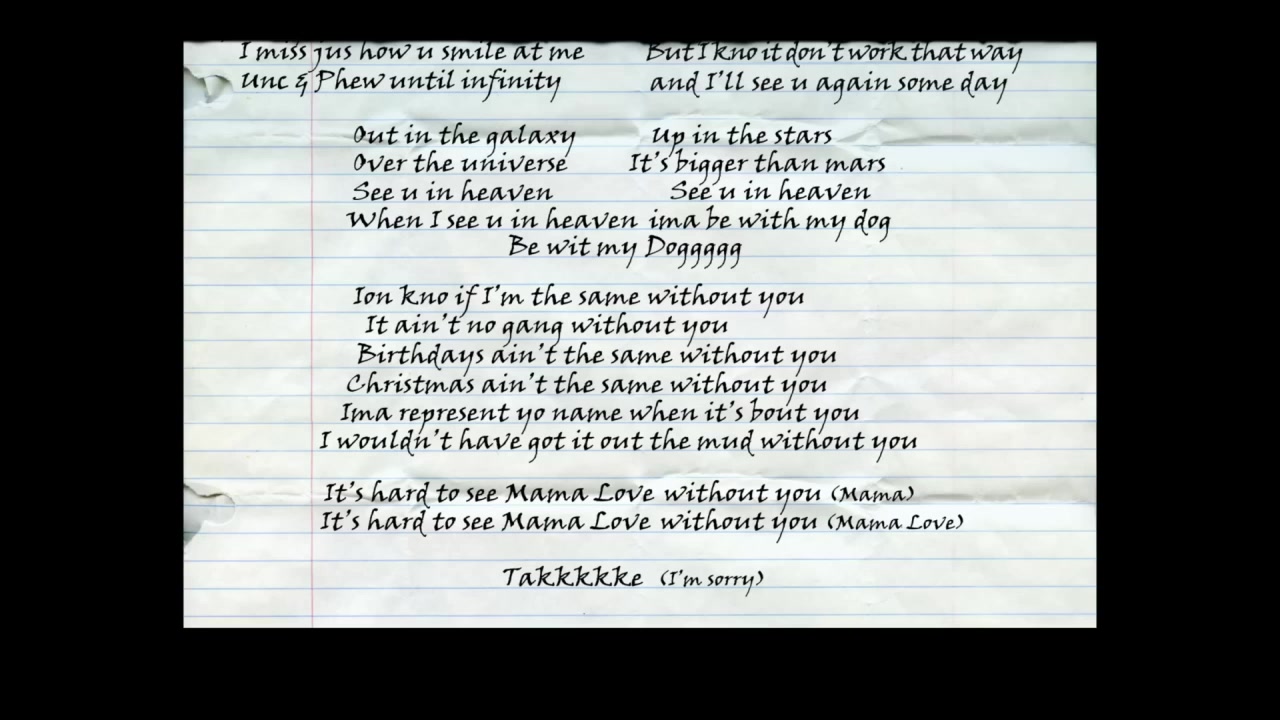 I miss jus how u smile at me But I kno it don't work that way
Unc & Phew until infinity and I'll see u again some day
Out in the galaxy Up in the stars
Over the universe It's bigger than mars
See u in heaven See u in heaven
When I see u in heaven ima be with my dog
Be wit my Doggggg
Ion kno if I'm the same without you
It ain't no gang without you
Birthdays ain't the same without you
Christmas ain't the same without you
Ima represent yo name when it's bout you
I wouldn't have got it out the mud without you
It's hard to see Mama Love without you (Mama)
It's hard to see Mama Love without you (Mama Love)
Takkkkke (I'm sorry)